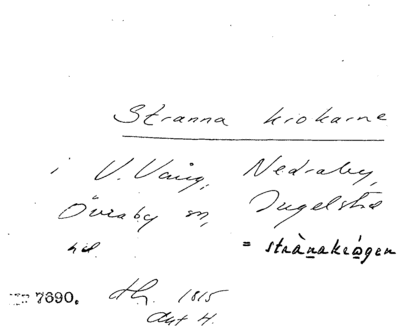 Stranna krokarne
i V. Vång, Nedraby,
Övraby sn, Ingelsta
hd. = strànakrògen
7690. Ah. 1815
Akt H.